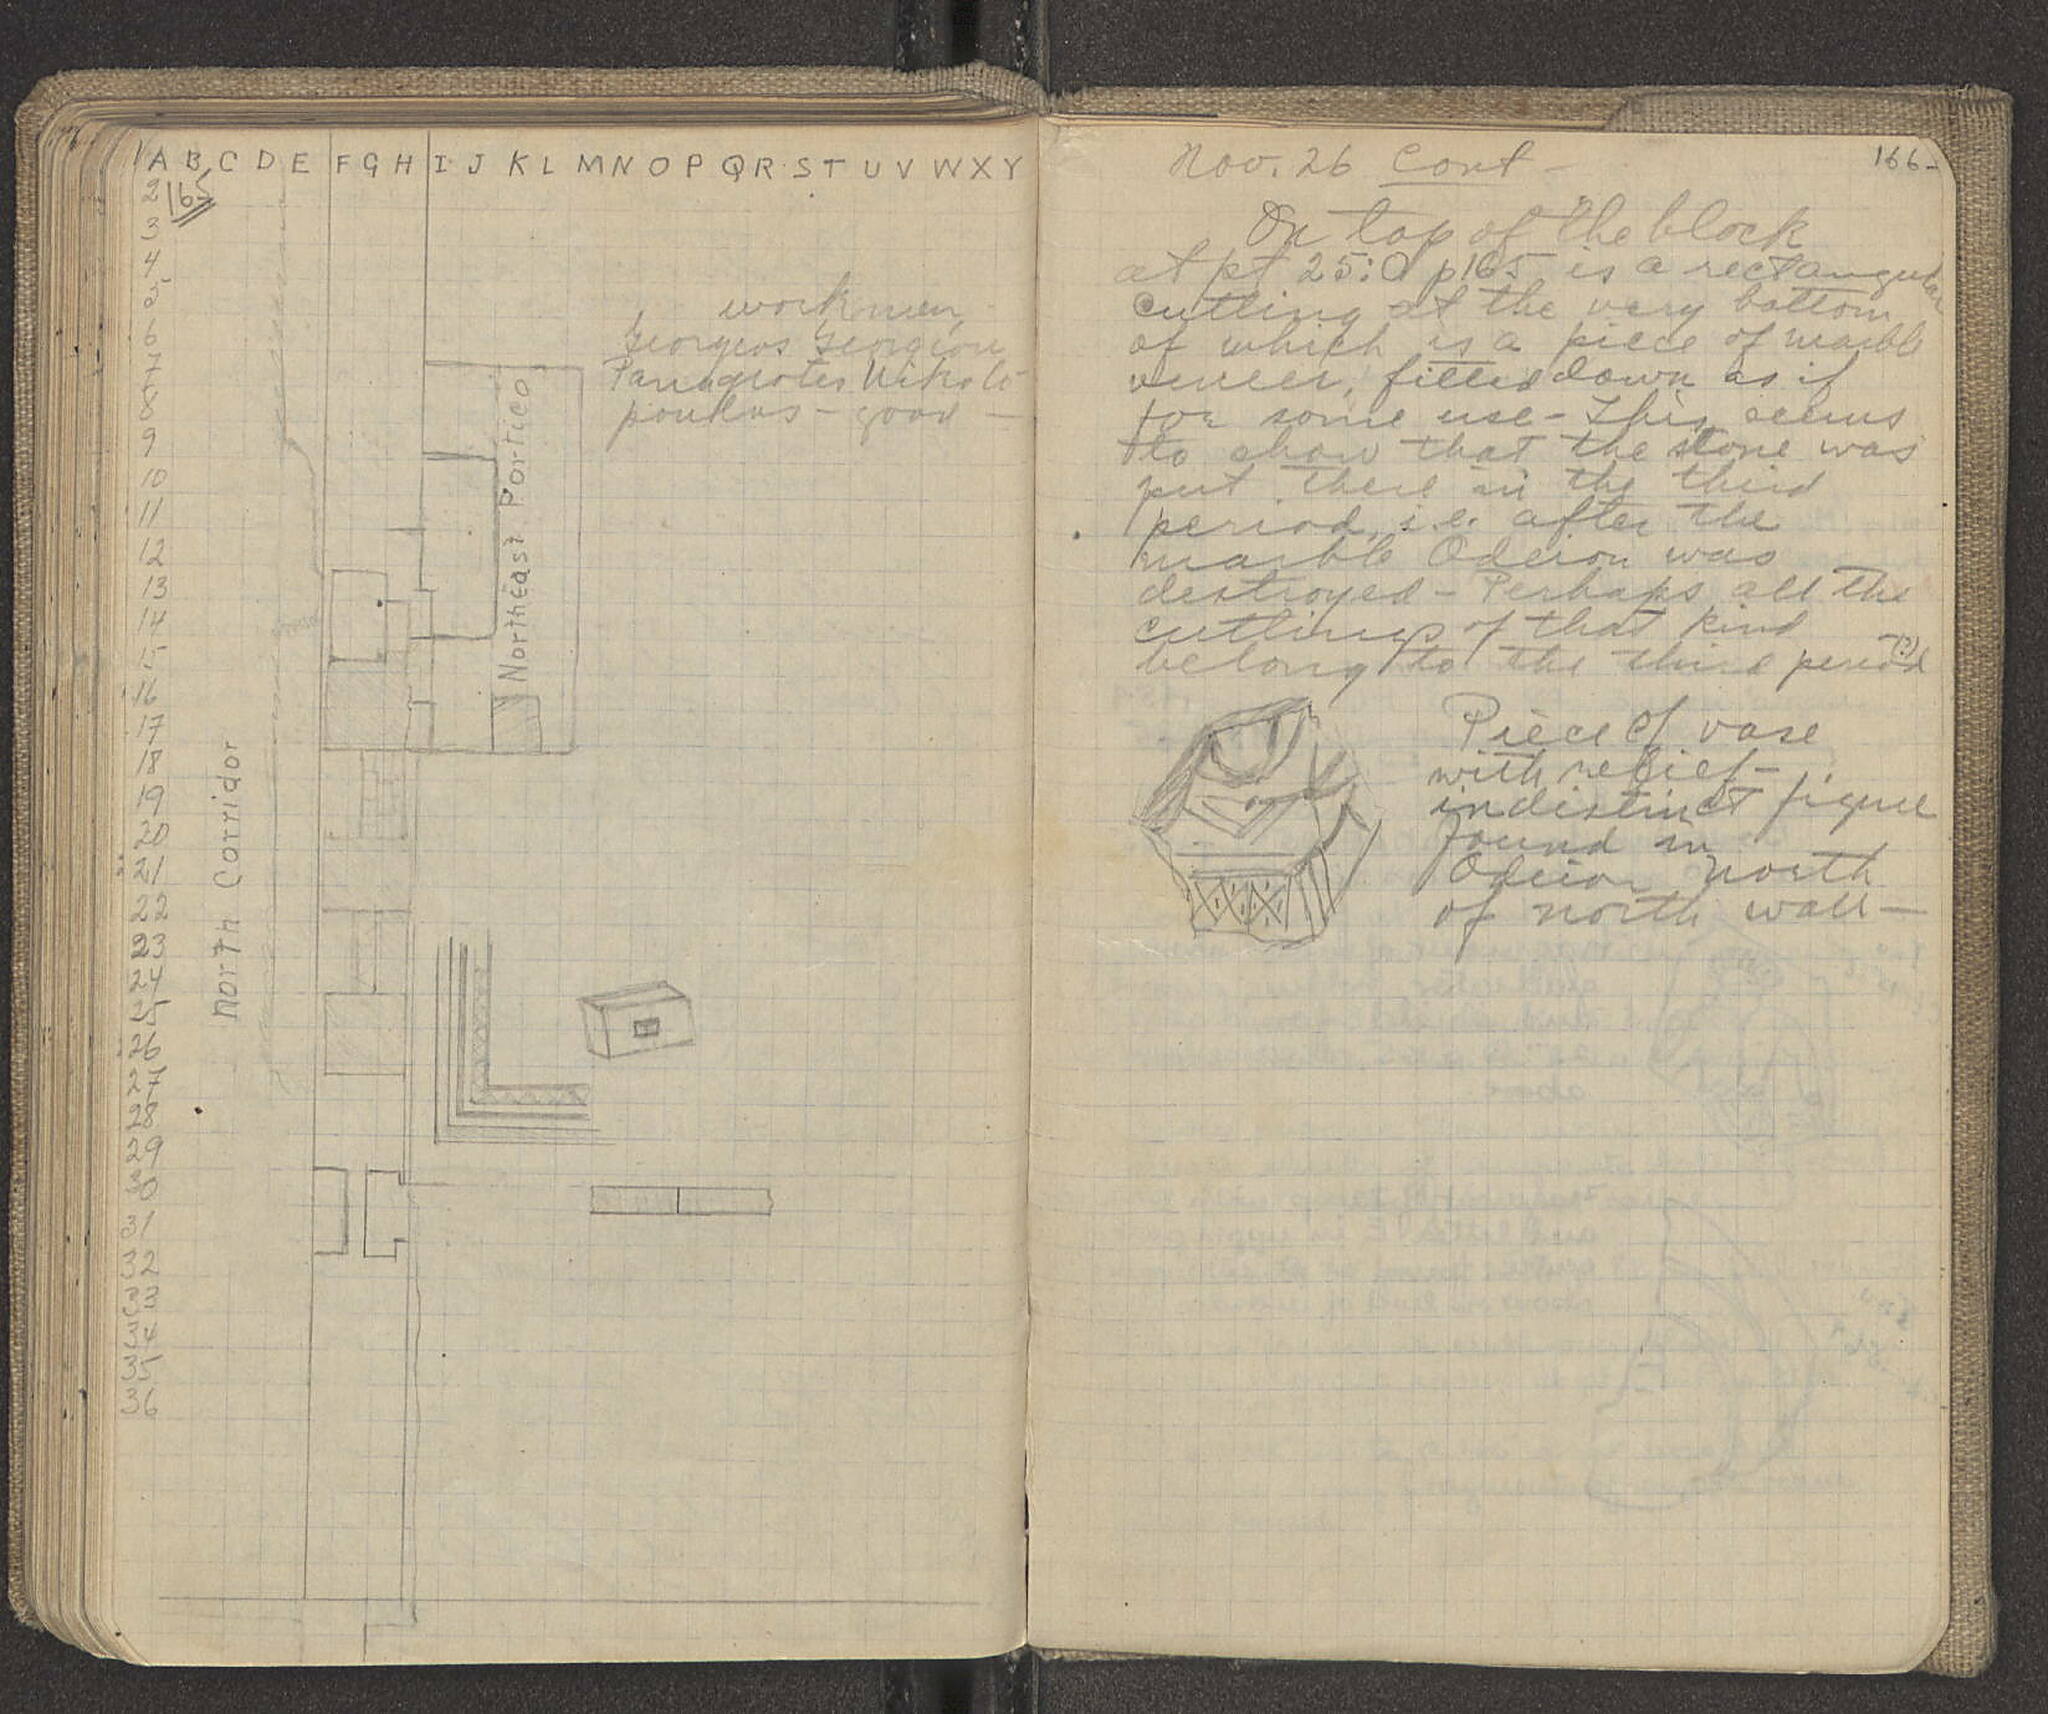 1 A B C D E F G H I J K L M N O P Q R S T U V W X Y
165
2
3
4
5
6
7
8
9
10
11
12
13
14
15
16
17
18
19
20
21
22
23
24
25
26
27
28
29
30
31
32
33
34
35
36
workmen
Georgios Georgiou
Panagiotes Nikolo-
poulos - good -
Northeast Portico
North Corridor
Nov. 26 Cont - 166-
On top of the block
at pt 25:O p165 is a rectangular
cutting at the very bottom
of which is a piece of marble
veneer, fitted down as if
for some use - This seems
to show that the stone was
put there in the third
period, i.e. after the
marble Odeion was
destroyed - Perhaps all the
cuttings of that kind
belong to the third period (?)
Piece of vase
with relief -
indistinct figure
found in
Odeion north
of north wall -